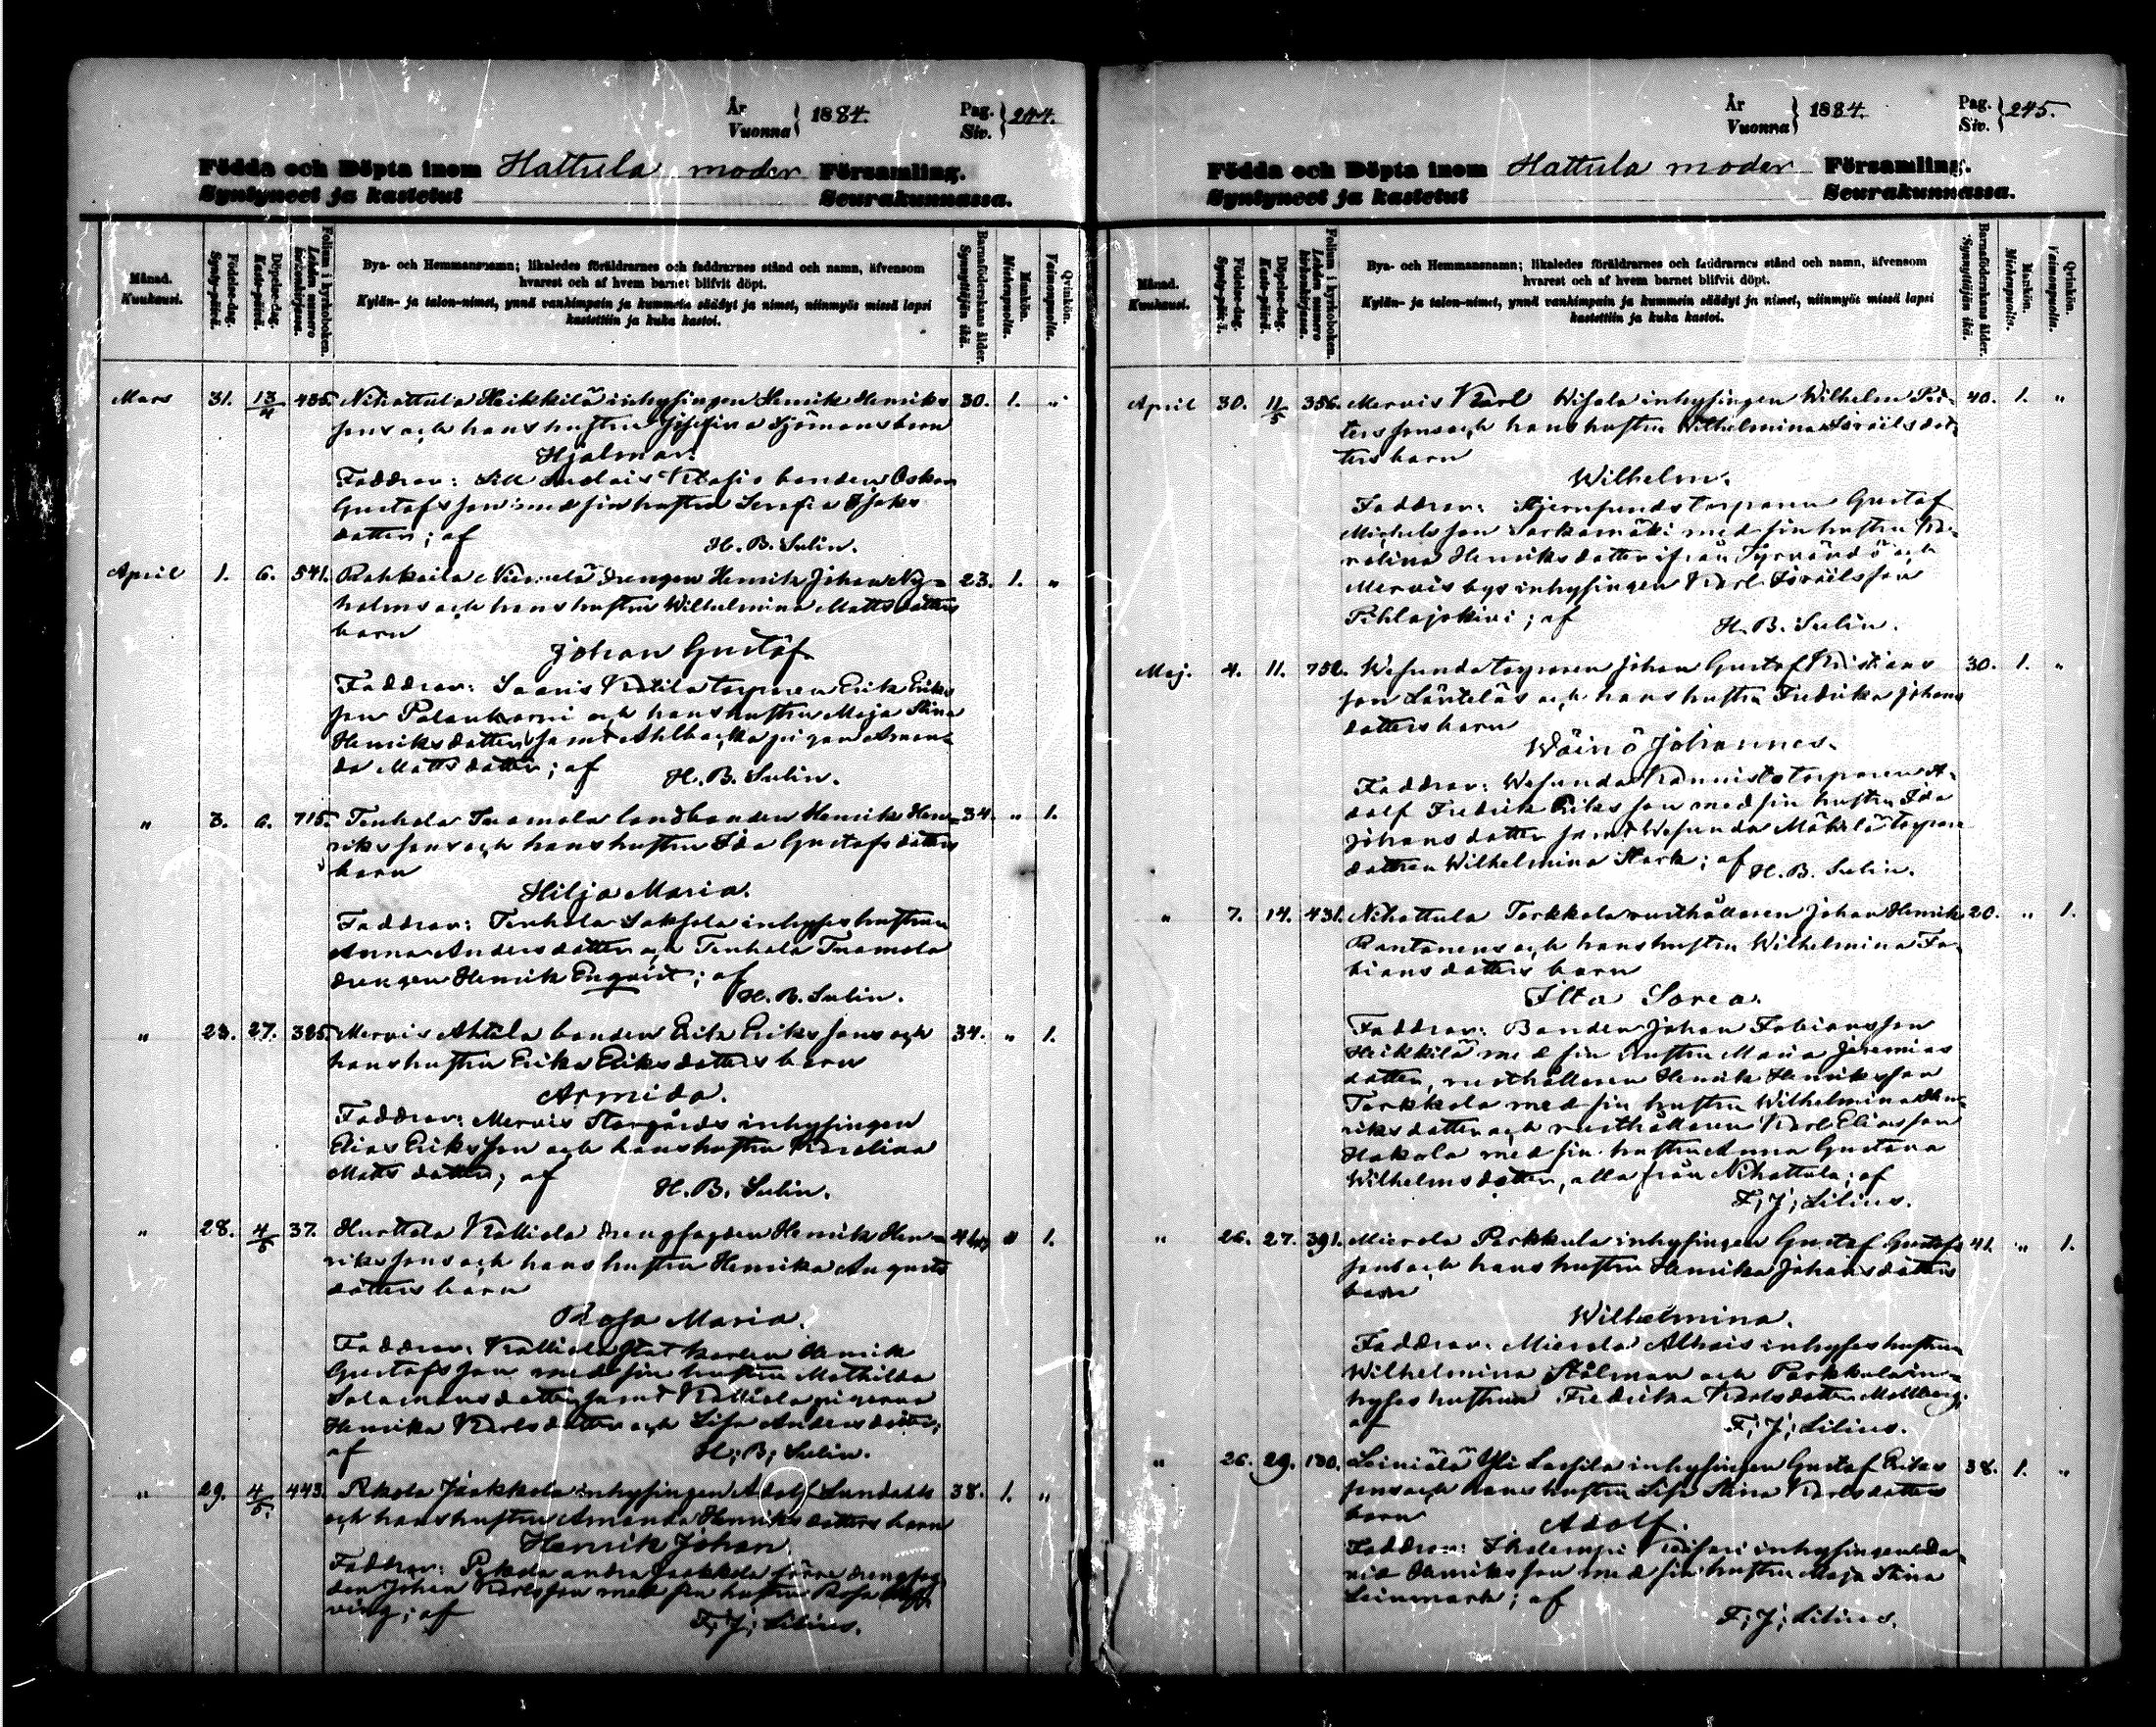 År
Vuonna } 1884.
Pag.
Siv. } 244.
Födda och Döpta inom Hattula moder Församling.
Syntyneet ja kastetut Seurakunnassa.
Månad.
Kuukausi.
Födelse-dag.
Synty-päivä.
Döpelse-dag.
Kaste-päivä.
Folium i kyrkoboken.
Lehden numero kirkonkirjassa.
Bya- och Hemmansnamn; likaledes föräldrarnes och faddrarnes stånd och namn, äfvensom
hvarest och af hvem barnet blifvit döpt.
Kylän- ja talon-nimet, ynnä vanhimpain ja kummein säädyt ja nimet, niinmyös missä lapsi
kastettiin ja kuka kastoi.
Barnaföderskans ålder.
Synnyttäjän ikä.
Mankön.
Miehenpuolia.
Qvinkön.
Vaimonpuolia.
Mars 31. 13/4 435. Nihattula Heikkilä inhysingen Henrik Henriks 30. 1. "
sons och hans hustru Sjömans barn
Hjalmar.
Faddrar: bonden Oskar
Gustafsson med sin hustru Serafia
dotter; af H. B. Sulin.
April 1. 6. 541. Rahkoila Niemelä drengen Henrik Johan Ny- 23. 1. "
holms och hans hustru Wilhelmina Mattsdotters
barn
Johan Gustaf
Faddrar: Saaris Kotila torparen Erik Eriks
son och hans hustru Maja Stina
Henriksdotter samt Ahlbacka pigan Aman-
da Mattsdotter; af H. B. Sulin.
" 3. 6. 715. Tenhola Tuomola landbonden Henrik Hen- 34. " 1.
riksons och hans hustru Ida Gustafsdotters
barn
Hilja Maria.
Faddrar: Tenhola Saksala inhyseshustrun
Anna Andersdotter och Tenhola Tuomola
drengen Henrik Enqvist; af
H. B. Sulin.
" 23. 27. 325. Mervis Ahtila bonden Erik Erikssons och 34. " 1.
hans hustru Erika Eriksdotters barn
Armida.
Faddrar: Mervis Storgårds inhysingen
Elias Eriksson och hans hustru Karolina
Matts dotter; af
H. B. Sulin.
" 28. 4/5 37. Hurttala Kalliola drengfogden Henrik Hen- " 1.
riksons och hans hustru Henrika Augusts
dotters barn
Rosa Maria.
Faddrar: Kalliola statkarlen Henrik
Gustafsson med sin hustru Mathilda
Salomonsdotter samt Kalliola pigorna
Henrika Karlsdotter och Lisa Andersdotter;
af H; B; Sulin.
" 29. 4/5. 443. Pekola Jaakkola inhysingen Adolf Lundahls 38. 1. "
och hans hustru Amanda Henriksdotters barn
Henrik Johan
Faddrar: Pekola andra Jaakkola förre drengfog-
den Johan Karlsson med sin hustru Rosa
af F; J; Lilius.
År
Vuonna } 1884.
Pag.
Siv. } 245.
Födda och Döpta inom Hattula moder Församling.
Syntyneet ja kastetut Seurakunnassa.
Månad.
Kuukausi.
Födelse-dag.
Synty-päivä.
Döpelse-dag.
Kaste-päivä.
Folium i kyrkoboken.
Lehden numero kirkonkirjassa.
Bya- och Hemmansnamn; likaledes föräldrarnes och faddrarnes stånd och namn, äfvensom
hvarest och af hvem barnet blifvit döpt.
Kylän- ja talon-nimet, ynnä vanhimpain ja kummein säädyt ja nimet, niinmyös missä lapsi
kastettiin ja kuka kastoi.
Barnaföderskans ålder.
Synnyttäjän ikä.
Mankön.
Miehenpuolia.
Qvinkön.
Vaimonpuolia.
April 30. 11/5 356. Mervis Karl inhysingen Wilhelm Pet-
40. 1. "
ters sons och hans hustru Wilhelmina Israelsdot-
ters barn
Wilhelm.
Faddrar: Stjernsunds torparen Gustaf
Michelsson med sin hustru Ka-
rolina Henriksdotter ifrån Tyrvändö och
Mervis bys inhysingen Karl Israelsson
Pihlajakivi; af H. B. Sulin.
Maj. 4. 11. 752. Wesunda torparen Johan Gustaf Kristians 30. 1. "
son Länteläs och hans hustru Fredrika Johans
dotters barn
Wäinö Johannes.
Faddrar: Wesunda Kannisto torparen A-
dolf Fredrik Eriksson med sin hustru Ida
Johansdotter samt Wesunda Mäkelä torpare
dottren Wilhelmina Stark; af H. B. Sulin.
" 7. 14. 431. Nihattula Torkkola rusthållaren Johan Henrik 20. " 1.
Rantanens och hans hustru Wilhelmina Fa-
biansdotters barn
Ilta Sarea.
Faddrar: Bonden Johan Fabiansson
Heikkilä med sin hustru Maria Jeremias
dotter, rusthållaren Henrik Henriksson
Torkkola med sin hustru Wilhelmina Hen-
riksdotter och rusthållaren Karl Eliasson
Hakala med sin hustru Anna Gustava
Wilhelmsdotter, alla från Nihattula; af
F; J; Lilius.
" 26. 27. 391. Mierola Parkkula inhysingen Gustaf Gustafs 41. " 1.
sons och hans hustru Henrika Johansdotters
barn
Wilhelmina.
Faddrar: Mierola Alhais inhyseshustrun
Wilhelmina Stålman och Parkkula in-
hyseshustrun Fredrika Karlsdotter Mellberg;
af F; J; Lilius.
" 26. 29. 130. Leiniälä Yli Lassila inhysingen Gustaf Eriks 38. 1. "
sons och hans hustru Lisa Stina Karlsdotters
barn
Adolf.
Faddrar: Ihalempi inhysingen Da-
vid Henriksson med sin hustru Maja Stina
Leinmark; af
F; J; Lilius.